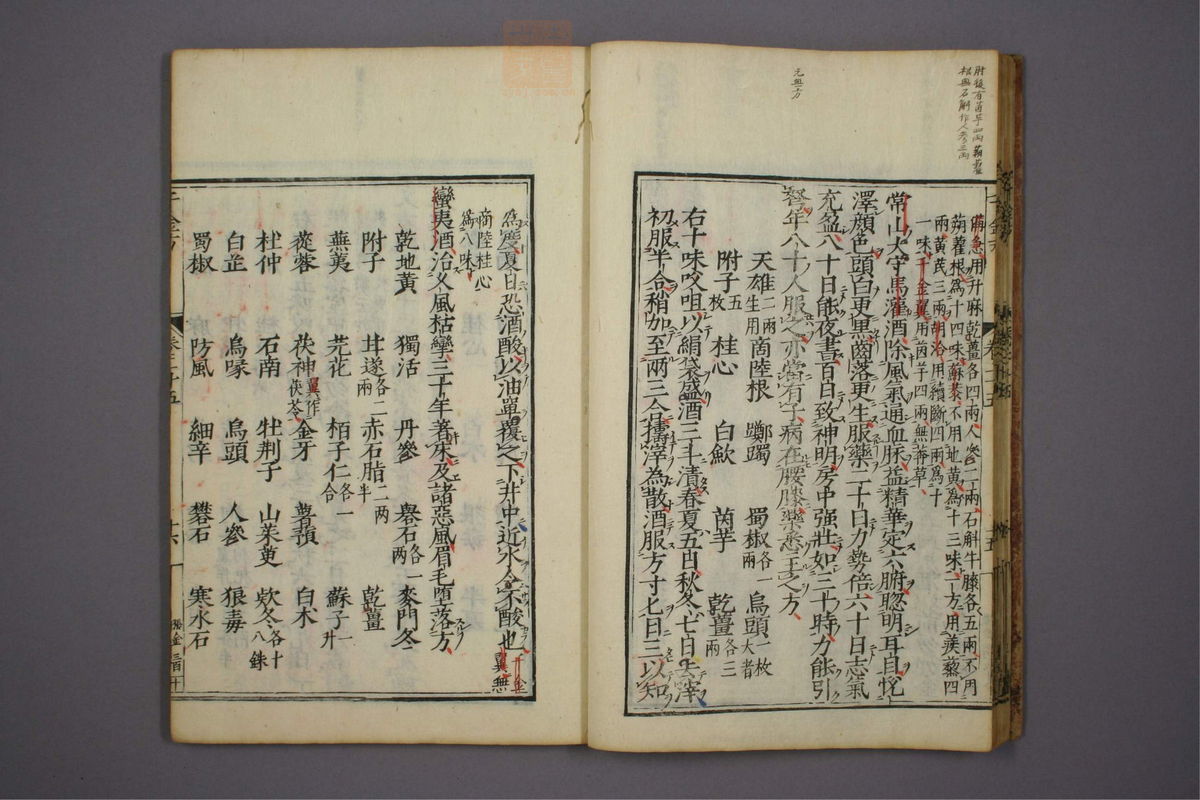 肘後有茵芋四兩菊薑
相無石斛作人參三兩
元無上方
備急用升麻乾薑各四兩人參二兩石斛牛膝各五兩不用
蒴藋根爲十四味蘇葉不用地黃爲十三味一方用蒺藜四
兩黃芪三兩胡洽用續斷四兩爲十
一味千金翼用茵芋四兩無莽草
常山太守馬灌酒除風氣通血脈益精華定六腑聰明耳目悅
澤顏色頭白更黑齒落更生服藥二十日力勢倍六十日志氣
充盈八十日能夜書百日致神明房中強壯如三十時力能引
弩年八十人服之亦當有子病在腰膝藥悉主之方
天雄二兩生用 商陸根 躑躅 蜀椒各一兩 烏頭一枚大者
附子五枚 桂心 白歛 茵芋 乾薑各三兩
右十味㕮咀以絹袋盛酒三斗漬春夏五日秋冬七日去滓
初服半合稍加至兩三合擣滓為散酒服方寸匕日三以知
為度夏日恐酒酸以油單覆之下井中近水令不酸也千金翼無
商陸桂心
爲八味
蠻夷酒治久風枯攣三十年著床及諸惡風眉毛墮落方
乾地黃 獨活 丹參 礜石各一兩 麥門冬
附子 甘遂各二兩 赤石脂二兩半 乾薑
蕪荑 芫花 栢子仁各一合 蘇子一升
蓯蓉 茯神翼作茯苓 金牙 䔄蕷 白术
杜仲 石南 牡荆子 山茱萸 欵冬各十八銖
白芷 烏喙 烏頭 人參 狼毒
蜀椒 防風 細辛 礬石 寒水石
千金方 卷二十五 十六